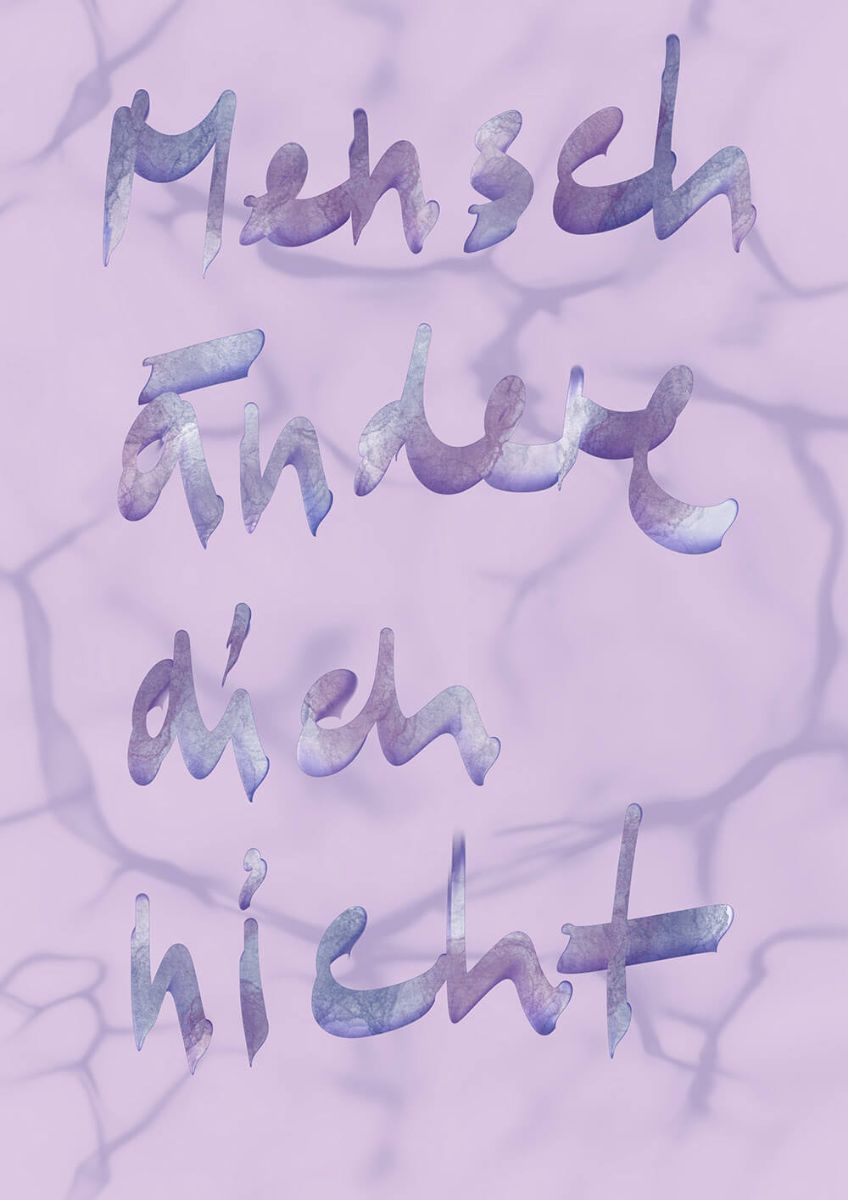 Mensch
ändere
dich
nicht